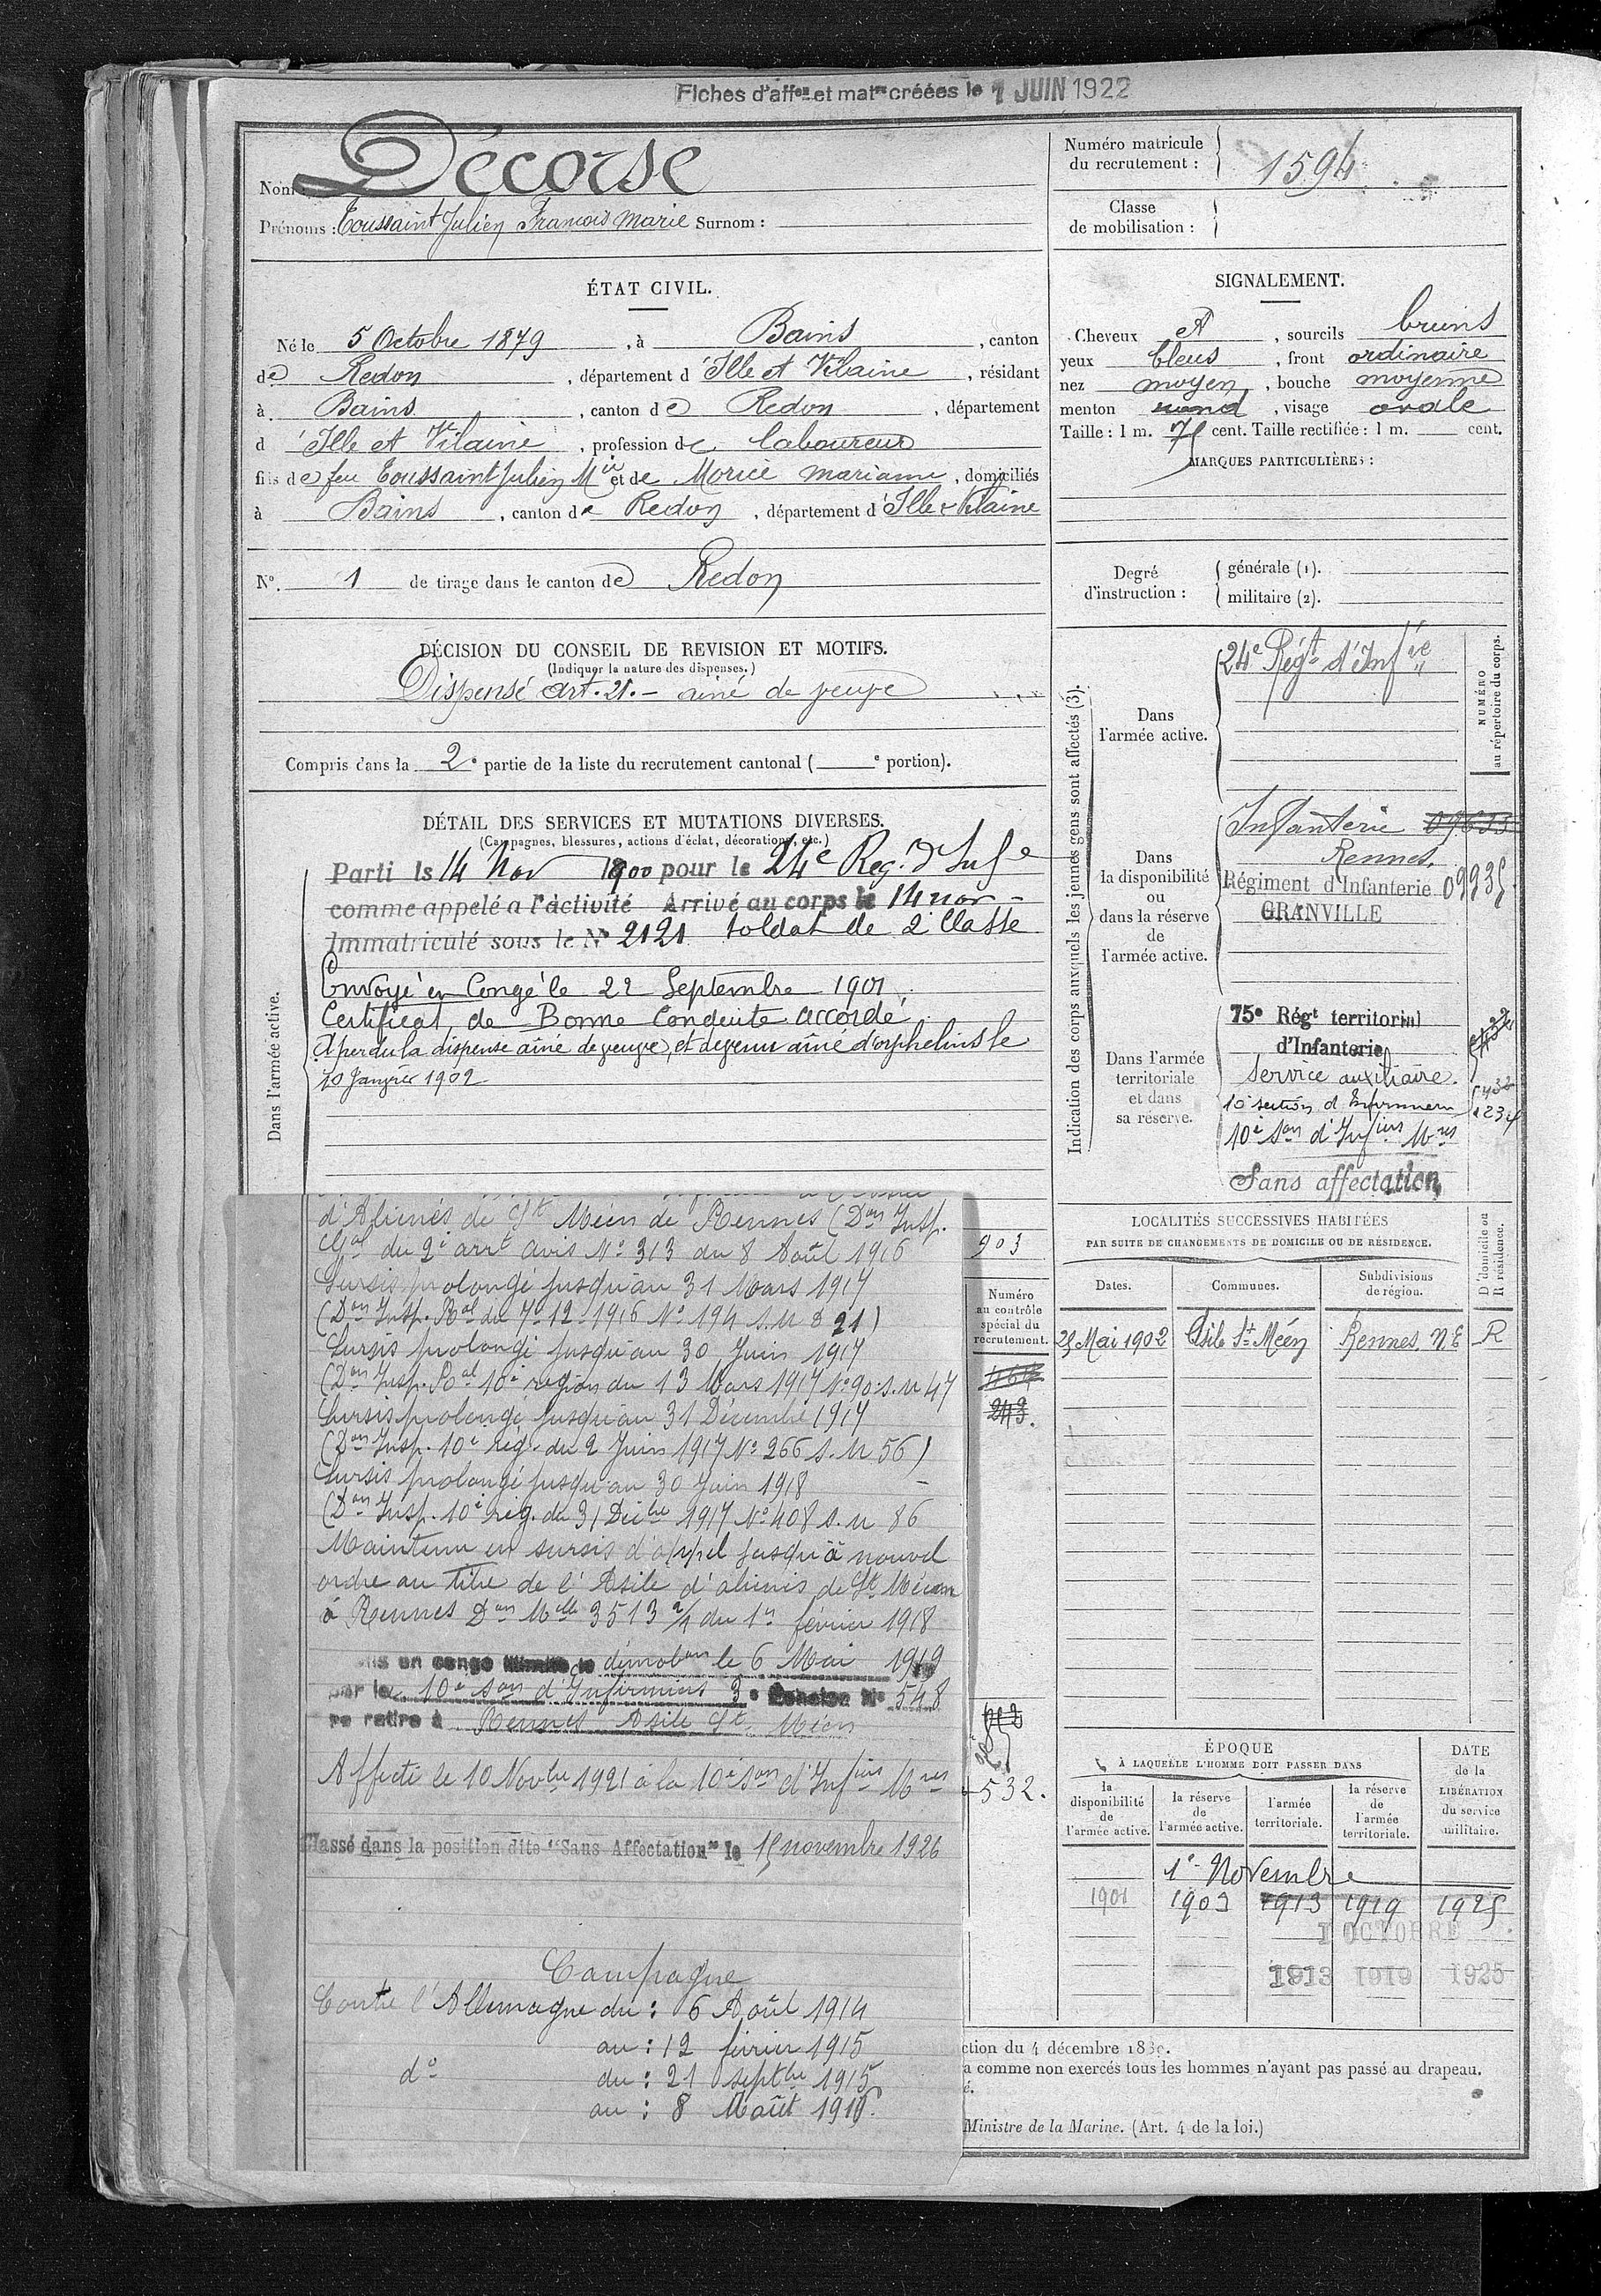 Fiches d'affon et matre créées le 1 JUIN 1922
Nom : Décorse
Prénoms : Toussaint Julien François Marie Surnom :
Numéro matricule
du recrutement : 1594
Classe
de mobilisation :
ÉTAT CIVIL.
Né le 5 Octobre 1879, à Bains, canton
de Redon, département d'Ille et Vilaine, résidant
à Bains, canton de Redon, département
d'Ille et Vilaine, profession de laboureur
fils de feu Toussaint Julien Mie et de Morice marianne, domiciliés
à Bains, canton de Redon, département d'Ille & Vilaine
N° 1 de tirage dans le canton de Redon
DÉCISION DU CONSEIL DE REVISION ET MOTIFS.
(Indiquer la nature des dispenses.)
Dispensé art. 21. - ainé de veuve
Compris dans la 2e partie de la liste du recrutement cantonal ( e portion).
SIGNALEMENT.
Cheveux et, sourcils bruns
yeux bleus, front ordinaire
nez moyen, bouche moyenne
menton rond, visage ovale
Taille : 1 m. 75 cent. Taille rectifiée : 1 m. cent.
MARQUES PARTICULIÈRES :
Degré
d'instruction :
générale (1).
militaire (2).
DÉTAIL DES SERVICES ET MUTATIONS DIVERSES.
(Campagnes, blessures, actions d'éclat, décorations, etc.)
Dans l'armée active.
Parti le 14 Nov 1900 pour le 24e Reg. d'Infe
comme appelé a l'activité Arrivé au corps le 14 nov
Immatriculé sous le N° 2121 soldat de 2e Classe
Envoyé en Congé le 22 Septembre 1901
Certificat de Bonne Conduite accordé
A perdu la dispense ainé de veuve, et devenu ainé d'orphelins le
10 Janvier 1902
Indication des corps auxquels les jeunes gens sont affectés (3).
NUMÉRO
au répertoire du corps.
Dans
l'armée active.
24e Régt d'Infie
Dans
la disponibilité
ou
dans la réserve
de
l'armée active.
Infanterie
Rennes.
Régiment d'Infanterie 09935
GRANVILLE
Dans l'armée
territoriale
et dans
sa réserve.
75e Régt territorial
d'Infanterie
Service auxiliaire.
10e section d'Infirmiers
10e Son d'Infiers Mres
Sans affectation
d'Aliénés de St Méen de Rennes (Don Insp.
Gal du 2e arrt avis N° 313 du 8 Août 1916
Sursis prolongé jusqu'au 31 Mars 1917
(Don Insp. Ral du 7-12-1916 N° 194 S.M 821)
Sursis prolongé jusqu'au 30 Juin 1917
(Don Insp. Ral 10e région du 13 Mars 1917 N° 90 S.M 47
Sursis prolongé jusqu'au 31 Décembre 1917
(Don Insp. 10e rég. du 2 Juin 1917 N° 266 S.M 56)
Sursis prolongé jusqu'au 30 Juin 1918
(Don Insp. 10e rég. du 31 Décbre 1917 N° 408 S.M 86
Maintenu en sursis d'appel jusqu'à nouvel
ordre au titre de l'Asile d'aliénés de St Méen
à Rennes Don Mlle 3513 2/4 du 1er février 1918
en congé démobon le 6 Mai 1919
par le 10e Son d'Infirmiers 3e Echelon N° 548
re retire à Rennes Asile St Méen
Affecté le 10 Novbre 1921 à la 10e Son d'Infiers Mres
Classé dans la position dite "Sans Affectation" le 15 novembre 1926
Campagne
Contre l'Allemagne du : 6 Août 1914
au : 12 février 1915
do du : 21 septbre 1915
au : 8 Août 1916.
903
Numéro
au contrôle
spécial du
recrutement.
464
243.
532.
LOCALITÉS SUCCESSIVES HABITÉES
PAR SUITE DE CHANGEMENTS DE DOMICILE OU DE RÉSIDENCE.
D domicile ou
R résidence.
Dates. Communes. Subdivisions
de région.
25 Mai 1902 Asile St Méen Rennes. N.E R
ÉPOQUE
À LAQUELLE L'HOMME DOIT PASSER DANS
la
disponibilité
de
l'armée active.
la réserve
de
l'armée active.
l'armée
territoriale.
la réserve
de
l'armée
territoriale.
DATE
de la
LIBÉRATION
du service
militaire.
1er Novembre
1901 1903 1913 1919 1925
1 OCTOBRE
1913 1919 1925
ction du 4 décembre 1889.
a comme non exercés tous les hommes n'ayant pas passé au drapeau.
é.
Ministre de la Marine. (Art. 4 de la loi.)